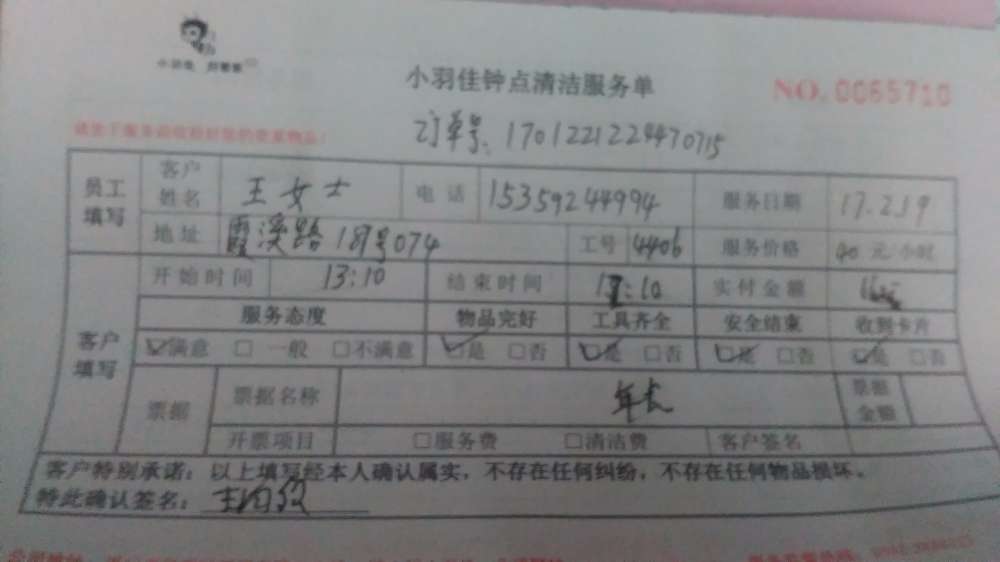 小羽佳钟点清洁服务单
NO. 0065710
订单号: 1701221224470715
员工填写 客户姓名 王女士 电话 15359244994 服务日期 17.2.19
地址 霞溪路 18号074 工号 4406 服务价格 40 元/小时
客户填写 开始时间 13:10 结束时间 17:10 实付金额
服务态度 物品完好 工具齐全 安全结束 收到卡片
☑满意 □一般 □不满意 ☑是 □否 ☑是 □否 ☑是 □否 ☑是 □否
票据 票据名称 年长 票据金额
开票项目 □服务费 □清洁费 客户签名
客户特别承诺：以上填写经本人确认属实，不存在任何纠纷，不存在任何物品损坏。
特此确认签名：